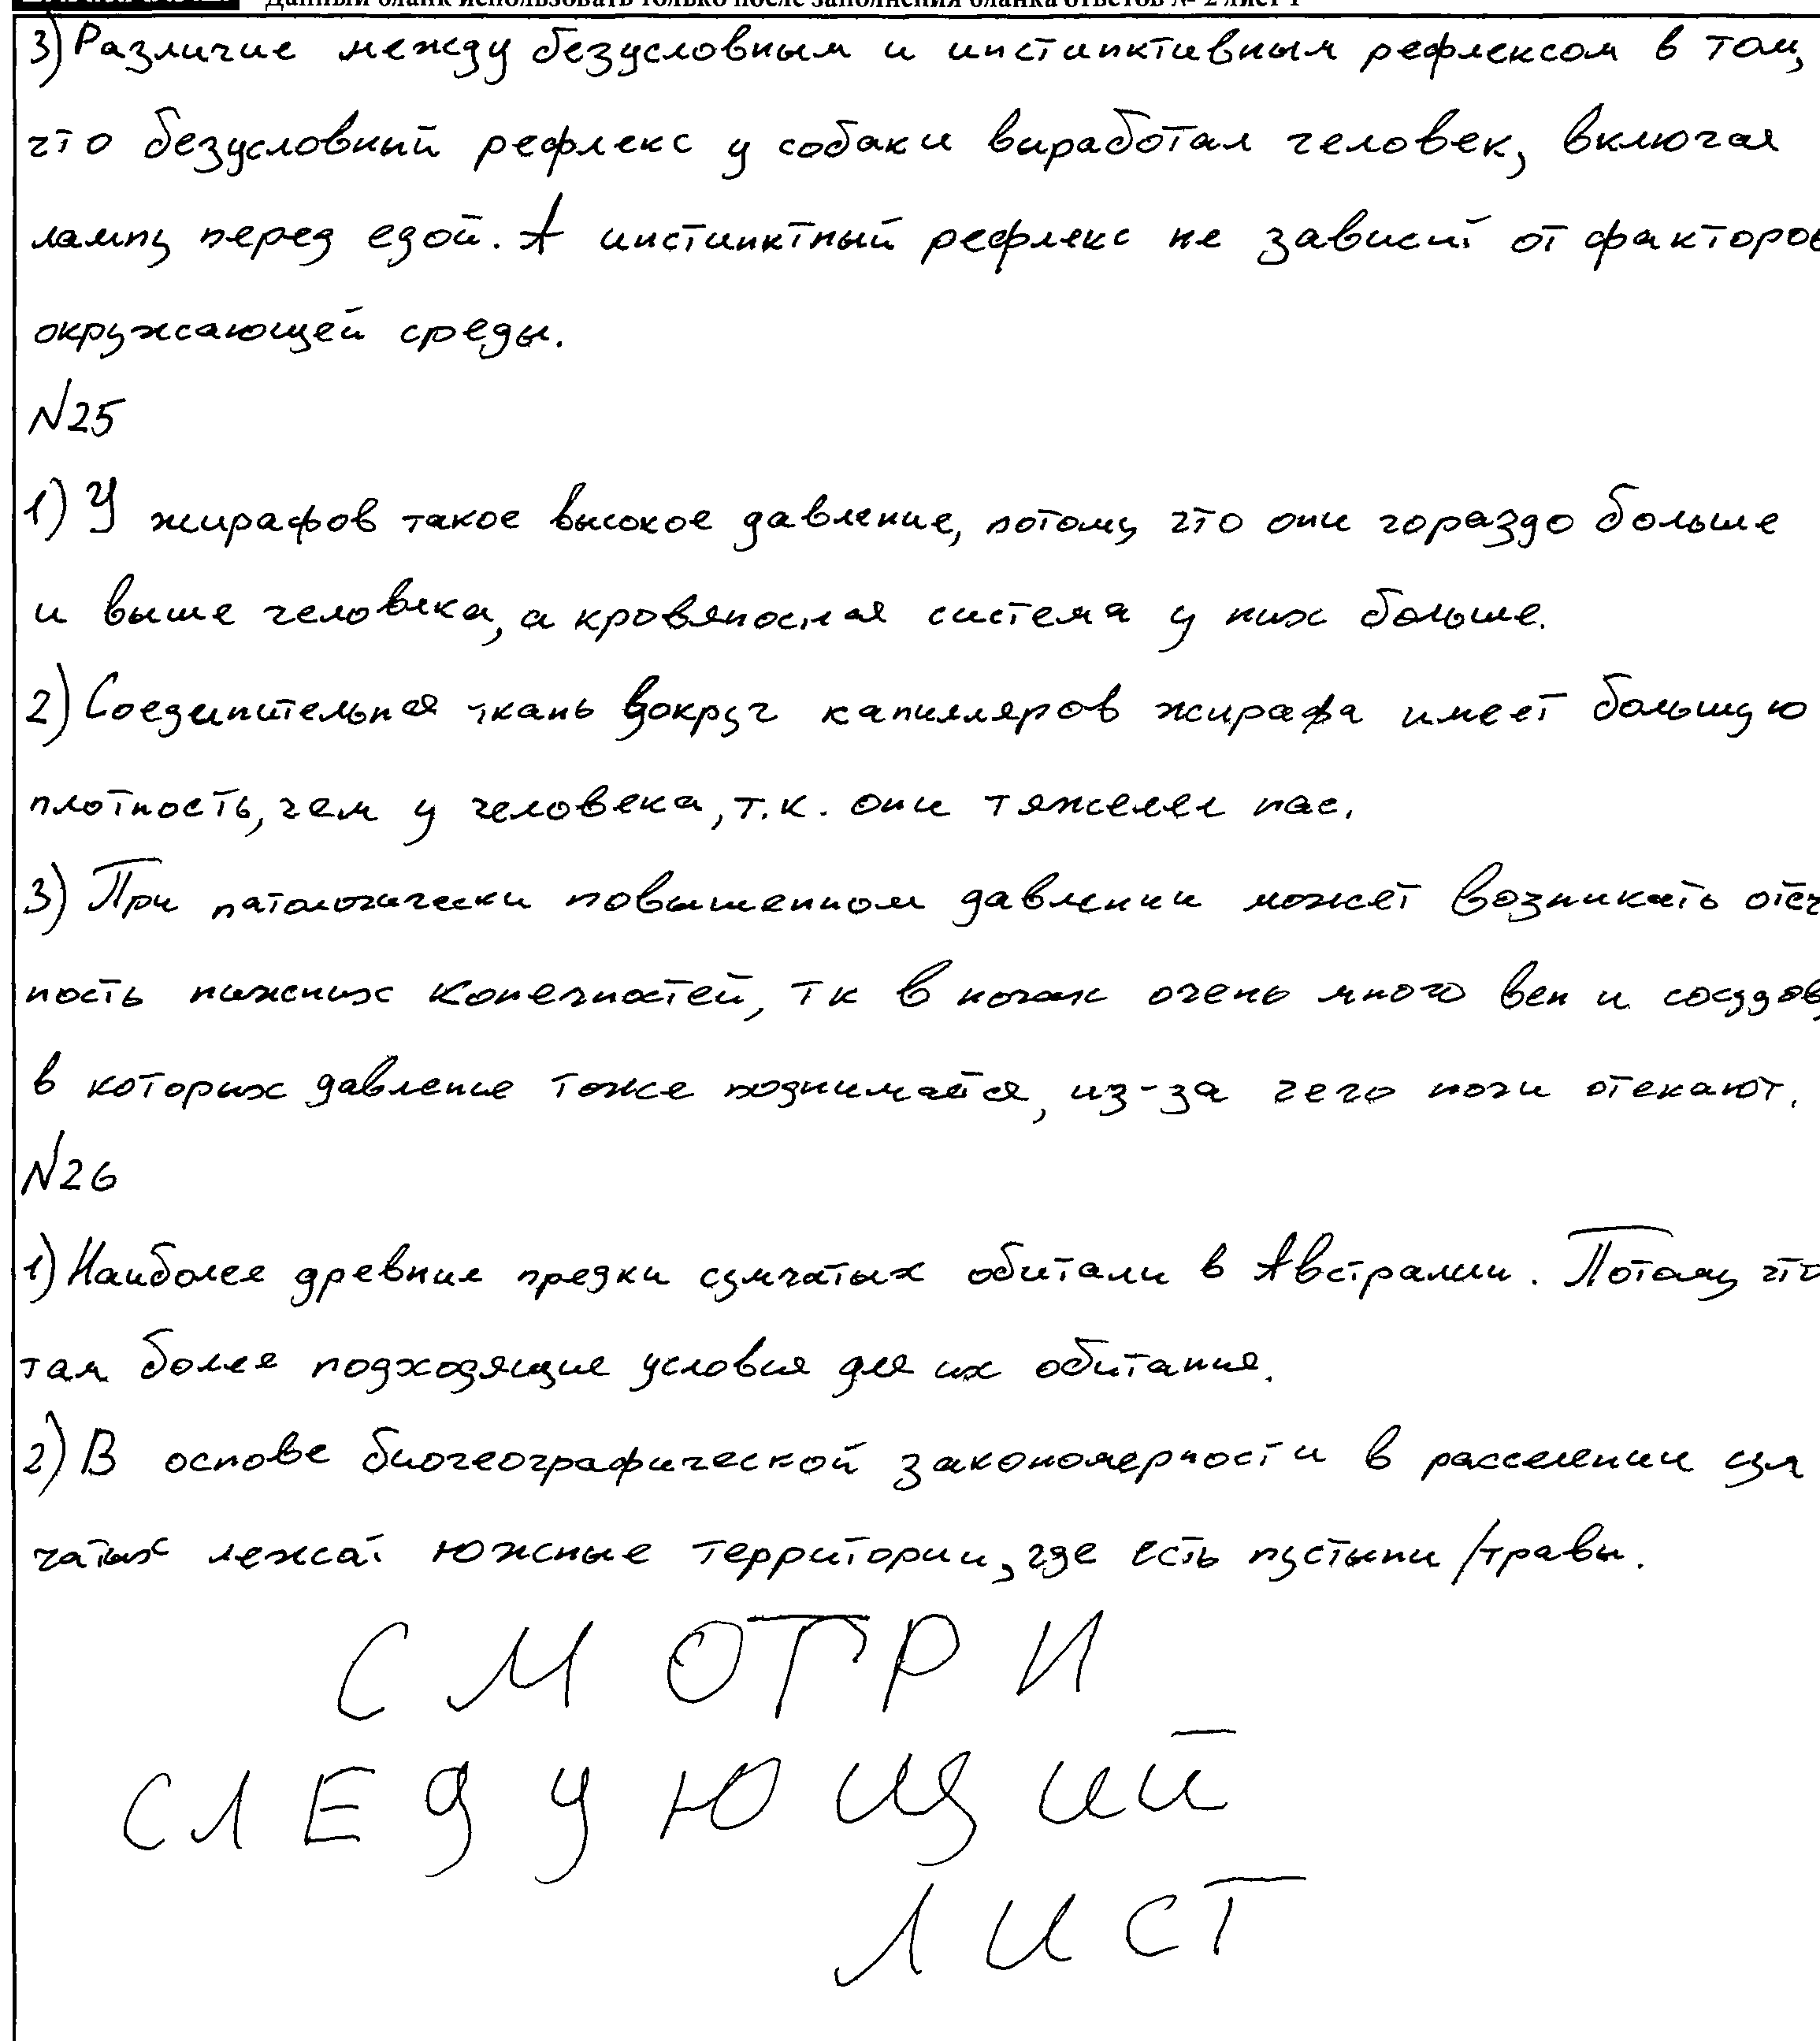 Данный бланк использовать только после заполнения бланка ответов № 2 лист 1
3) Различие между безусловным и инстинктивным рефлексом в том,
что безусловный рефлекс у собаки выработал человек, включая
лампу перед едой. А инстинктный рефлекс не зависит от факторов
окружающей среды.
N25
1) У жирафов такое высокое давление, потому что они гораздо больше
и выше человека, а кровяносная система у них больше.
2) Соединительная ткань вокруг капилляров жирафа имеет большую
плотность, чем у человека, т.к. они тяжелее нас.
3) При патологически повышенном давлении может возникать отеч
ность нижних конечностей, тк в ногах очень много вен и сосудов,
в которых давление тоже поднимается, из-за чего ноги отекают.
N26
1) Наиболее древние предки сумчатых обитали в Австралии. Потому что
там более подходящие условия для их обитания.
2) В основе биогеографической закономерности в расселении сум
чатых лежат южные территории, где есть пустыни/травы.
СМОТРИ
СЛЕДУЮЩИЙ
ЛИСТ